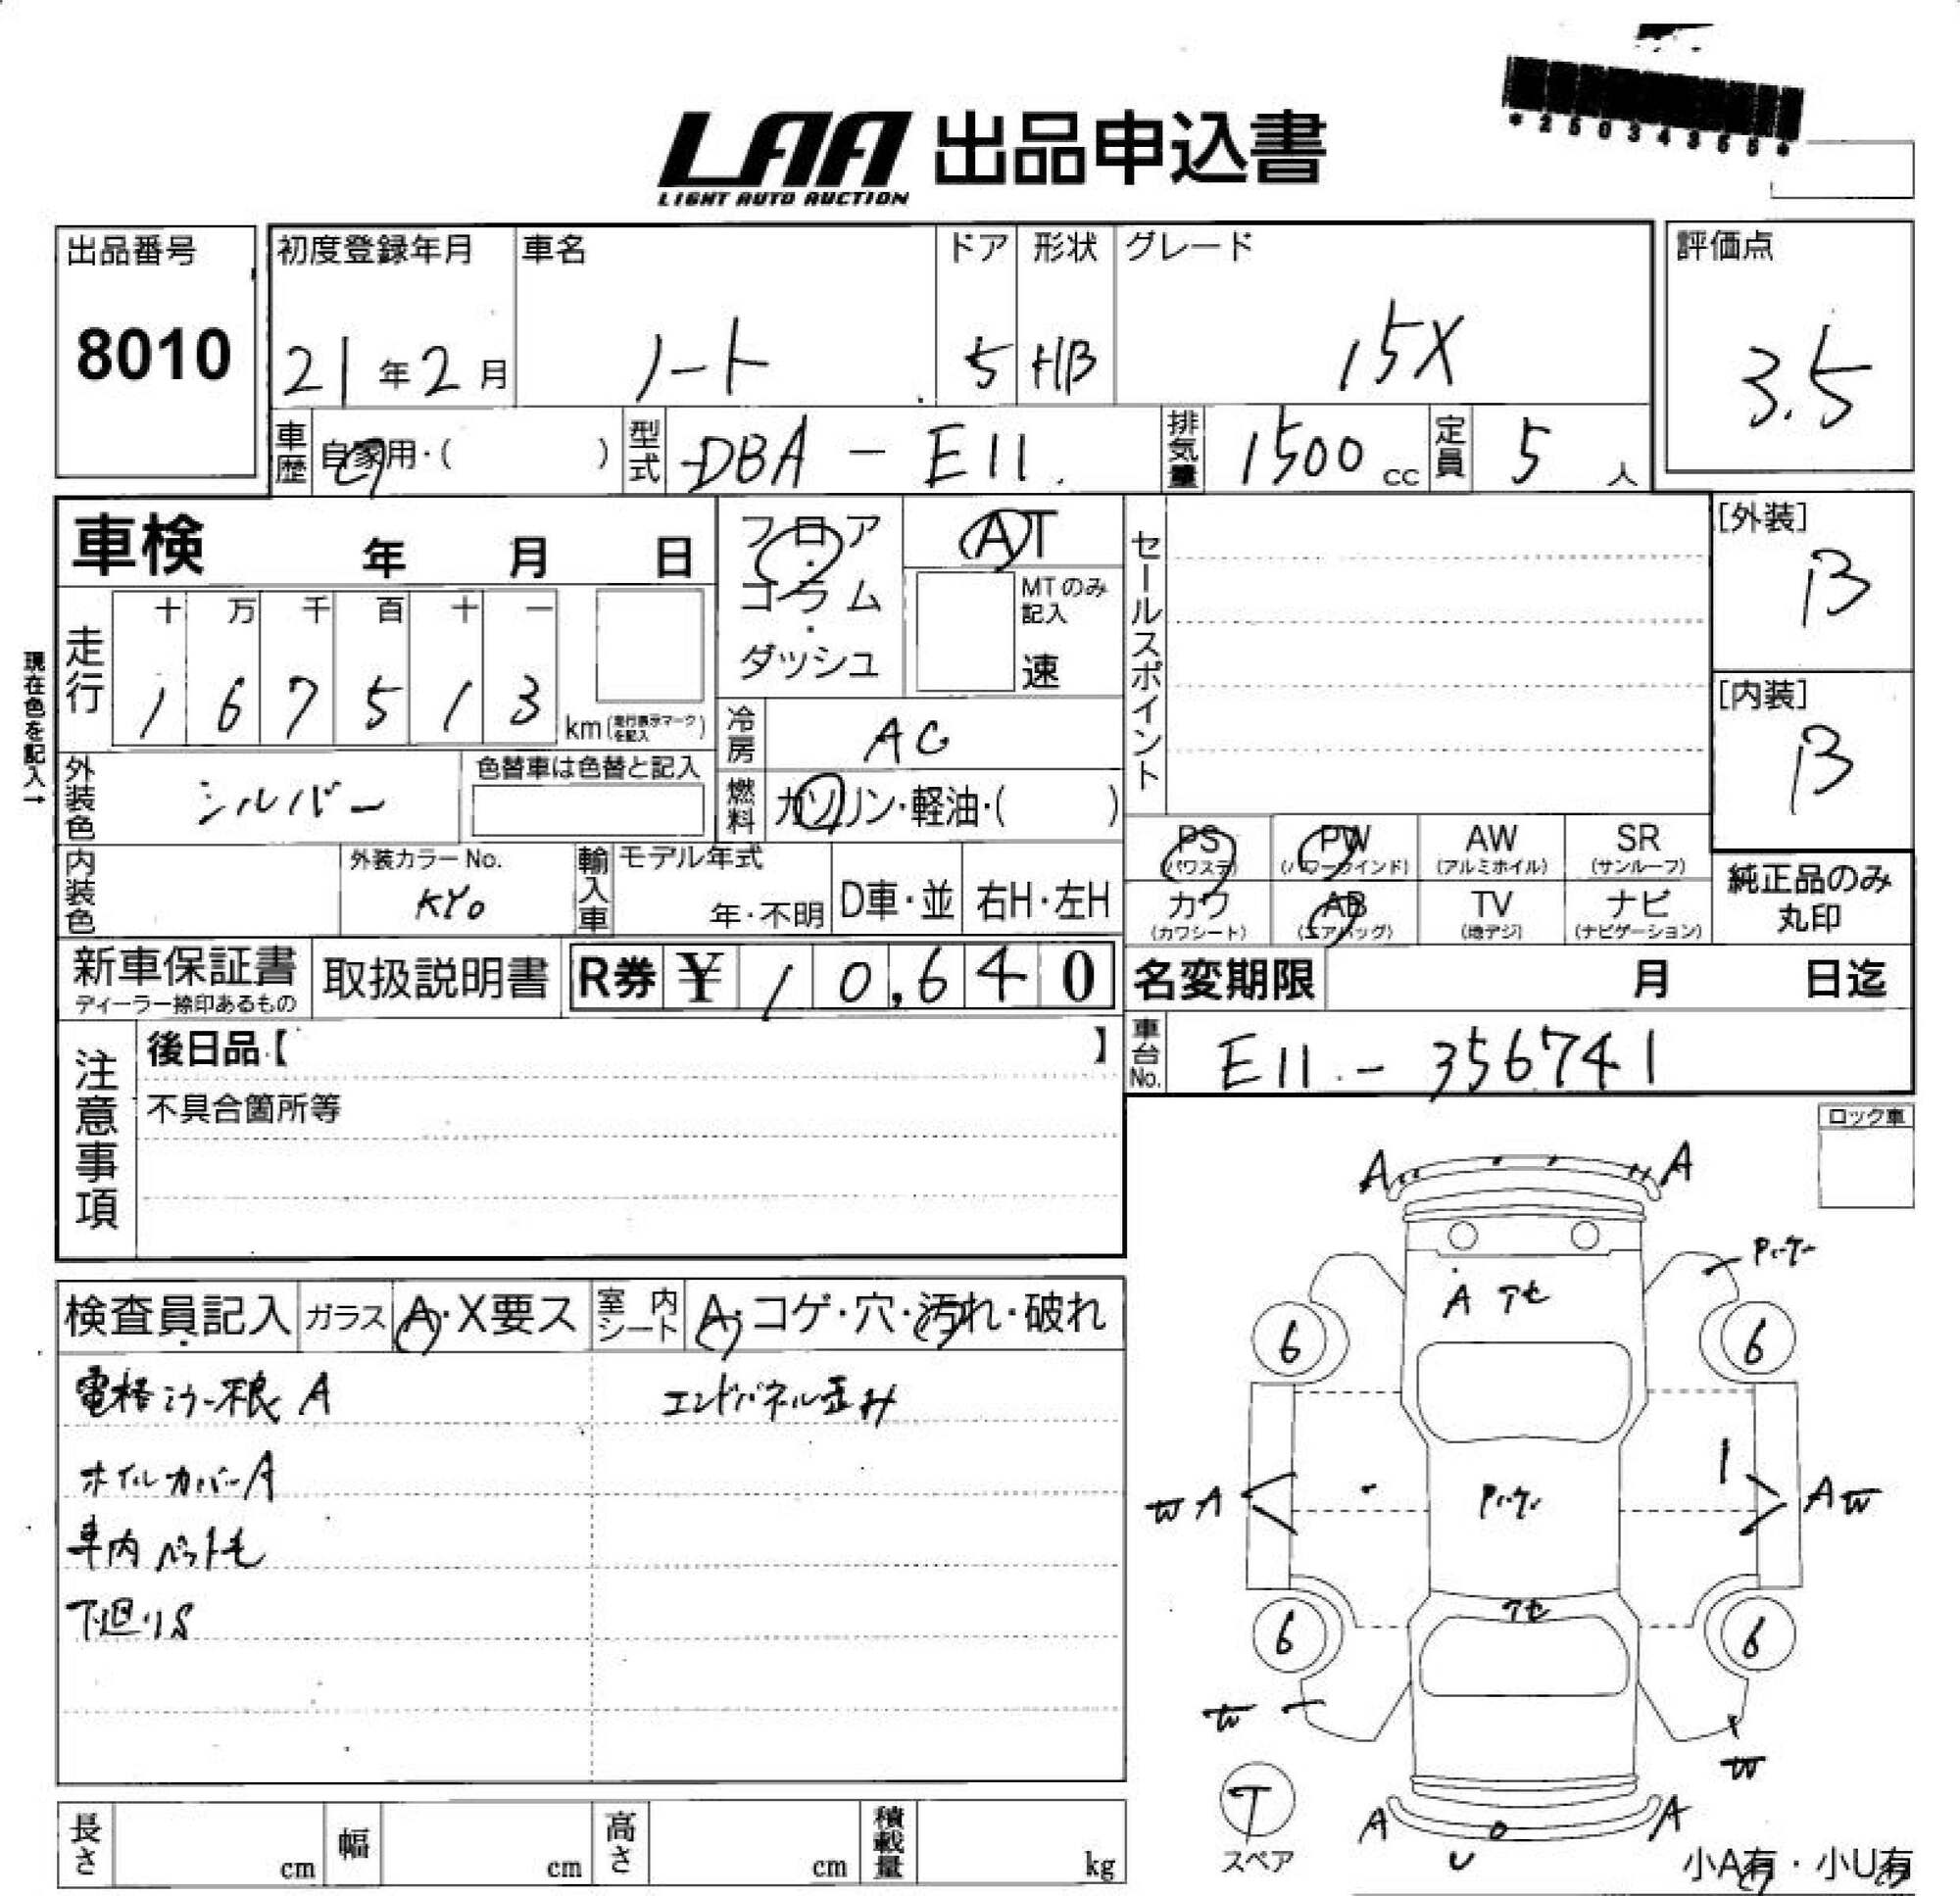 *25034355*
LAA 出品申込書
LIGHT AUTO AUCTION
出品番号 初度登録年月 車名 ドア 形状 グレード 評価点
8010 21年2月 ノート 5 HB 15X 3.5
車歴 自家用・( ) 型式 DBA - E11 排気量 1500cc 定員 5人
車検 年 月 日 フロア・コラム・ダッシュ AT
MTのみ記入
速
セールスポイント
[外装]
B
[内装]
B
現在色を記入→
走行 十 万 千 百 十 一
1 6 7 5 1 3 km(走行表示マークを記入)
冷房 AC
外装色 シルバー 色替車は色替と記入
燃料 ガソリン・軽油・( )
内装色 外装カラーNo. KY0
輸入車 モデル年式 年・不明 D車・並 右H・左H
PS (パワステ) PW (パワーウインド) AW (アルミホイル) SR (サンルーフ)
カワ (カワシート) AB (エアバッグ) TV (地デジ) ナビ (ナビゲーション)
純正品のみ丸印
新車保証書 ディーラー捺印あるもの 取扱説明書 R券 ¥ 10,640
名変期限 月 日迄
車台No. E11-356741
注意事項
後日品【 】
不具合箇所等
ロック車
検査員記入 ガラス A・X要ス 室内シート A・コゲ・穴・汚れ・破れ
電格ミラー不良 A エンドパネル歪み
ホイルカバーA
車内ペット毛
下廻りS
A A
A アセ
6 6
W A A W
アセ
6 6
W W
T
スペア
A A
U
小A有・小U有
長さ cm 幅 cm 高さ cm 積載量 kg